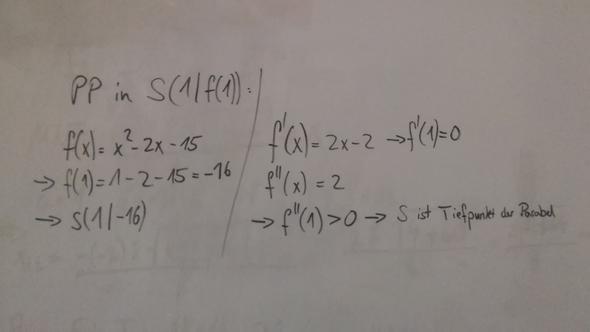 PP in S(1/f(1)):
f(x) = x² - 2x - 15
→ f(1) = 1 - 2 - 15 = -16
→ S(1/-16)
f'(x) = 2x - 2 → f'(1) = 0
f''(x) = 2
→ f''(1) > 0 → S ist Tiefpunkt der Parabel